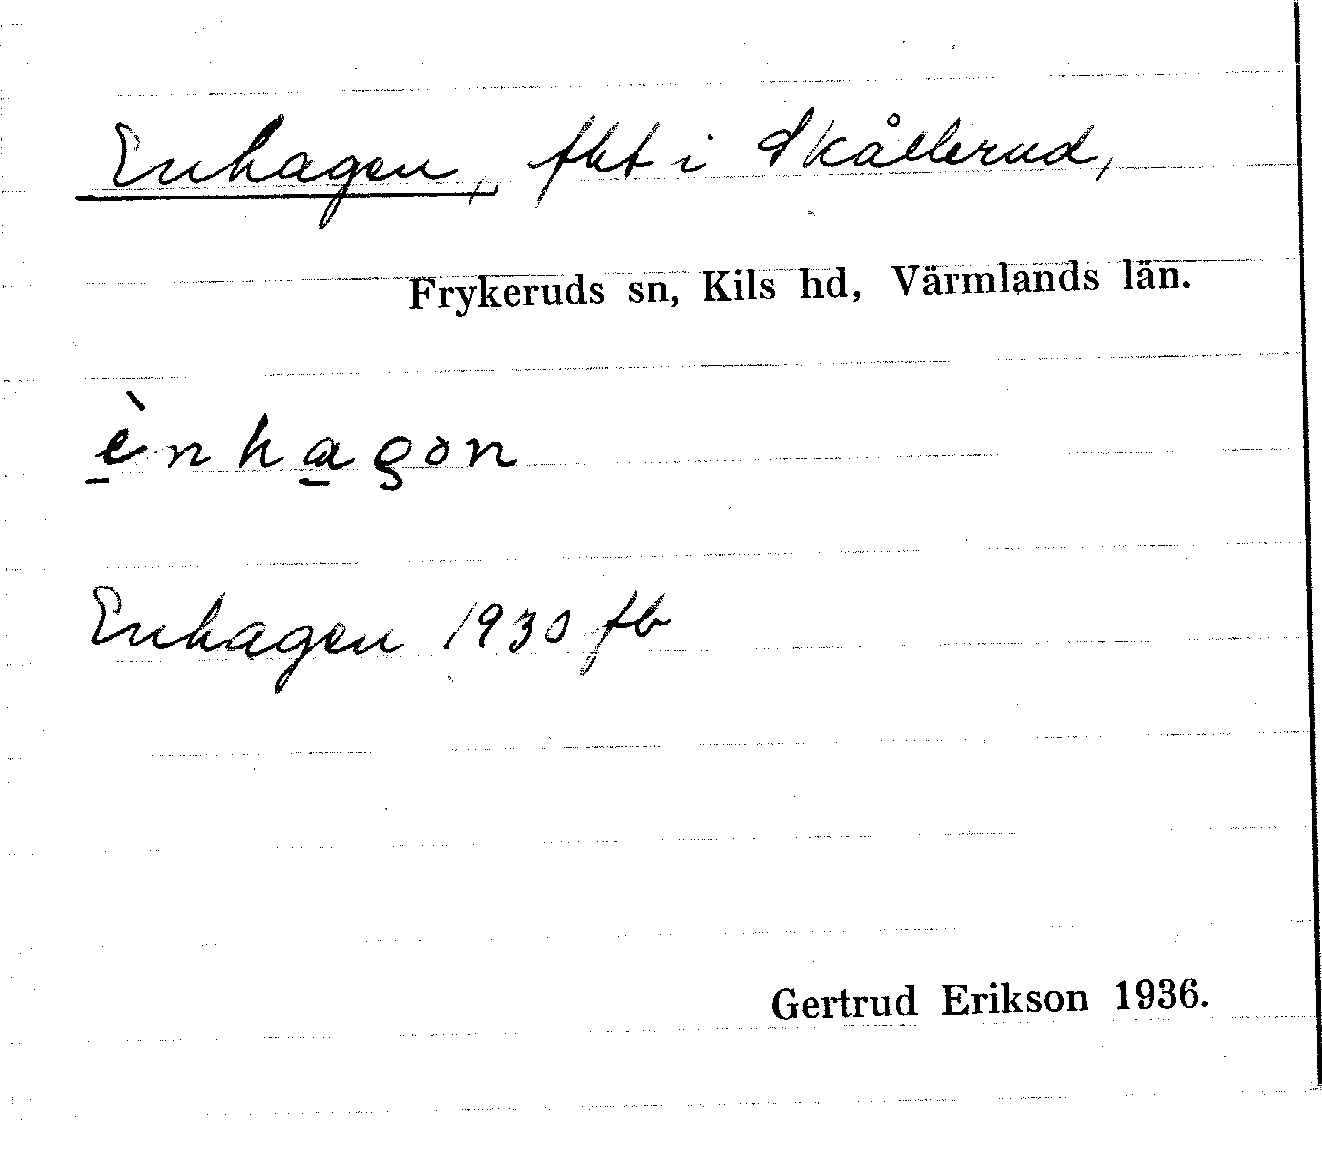 Enhagen, fbt i Skållerud,
Frykeruds sn, Kils hd, Värmlands län.
ènhagon
Enhagen 1930 fb
Gertrud Erikson 1936.